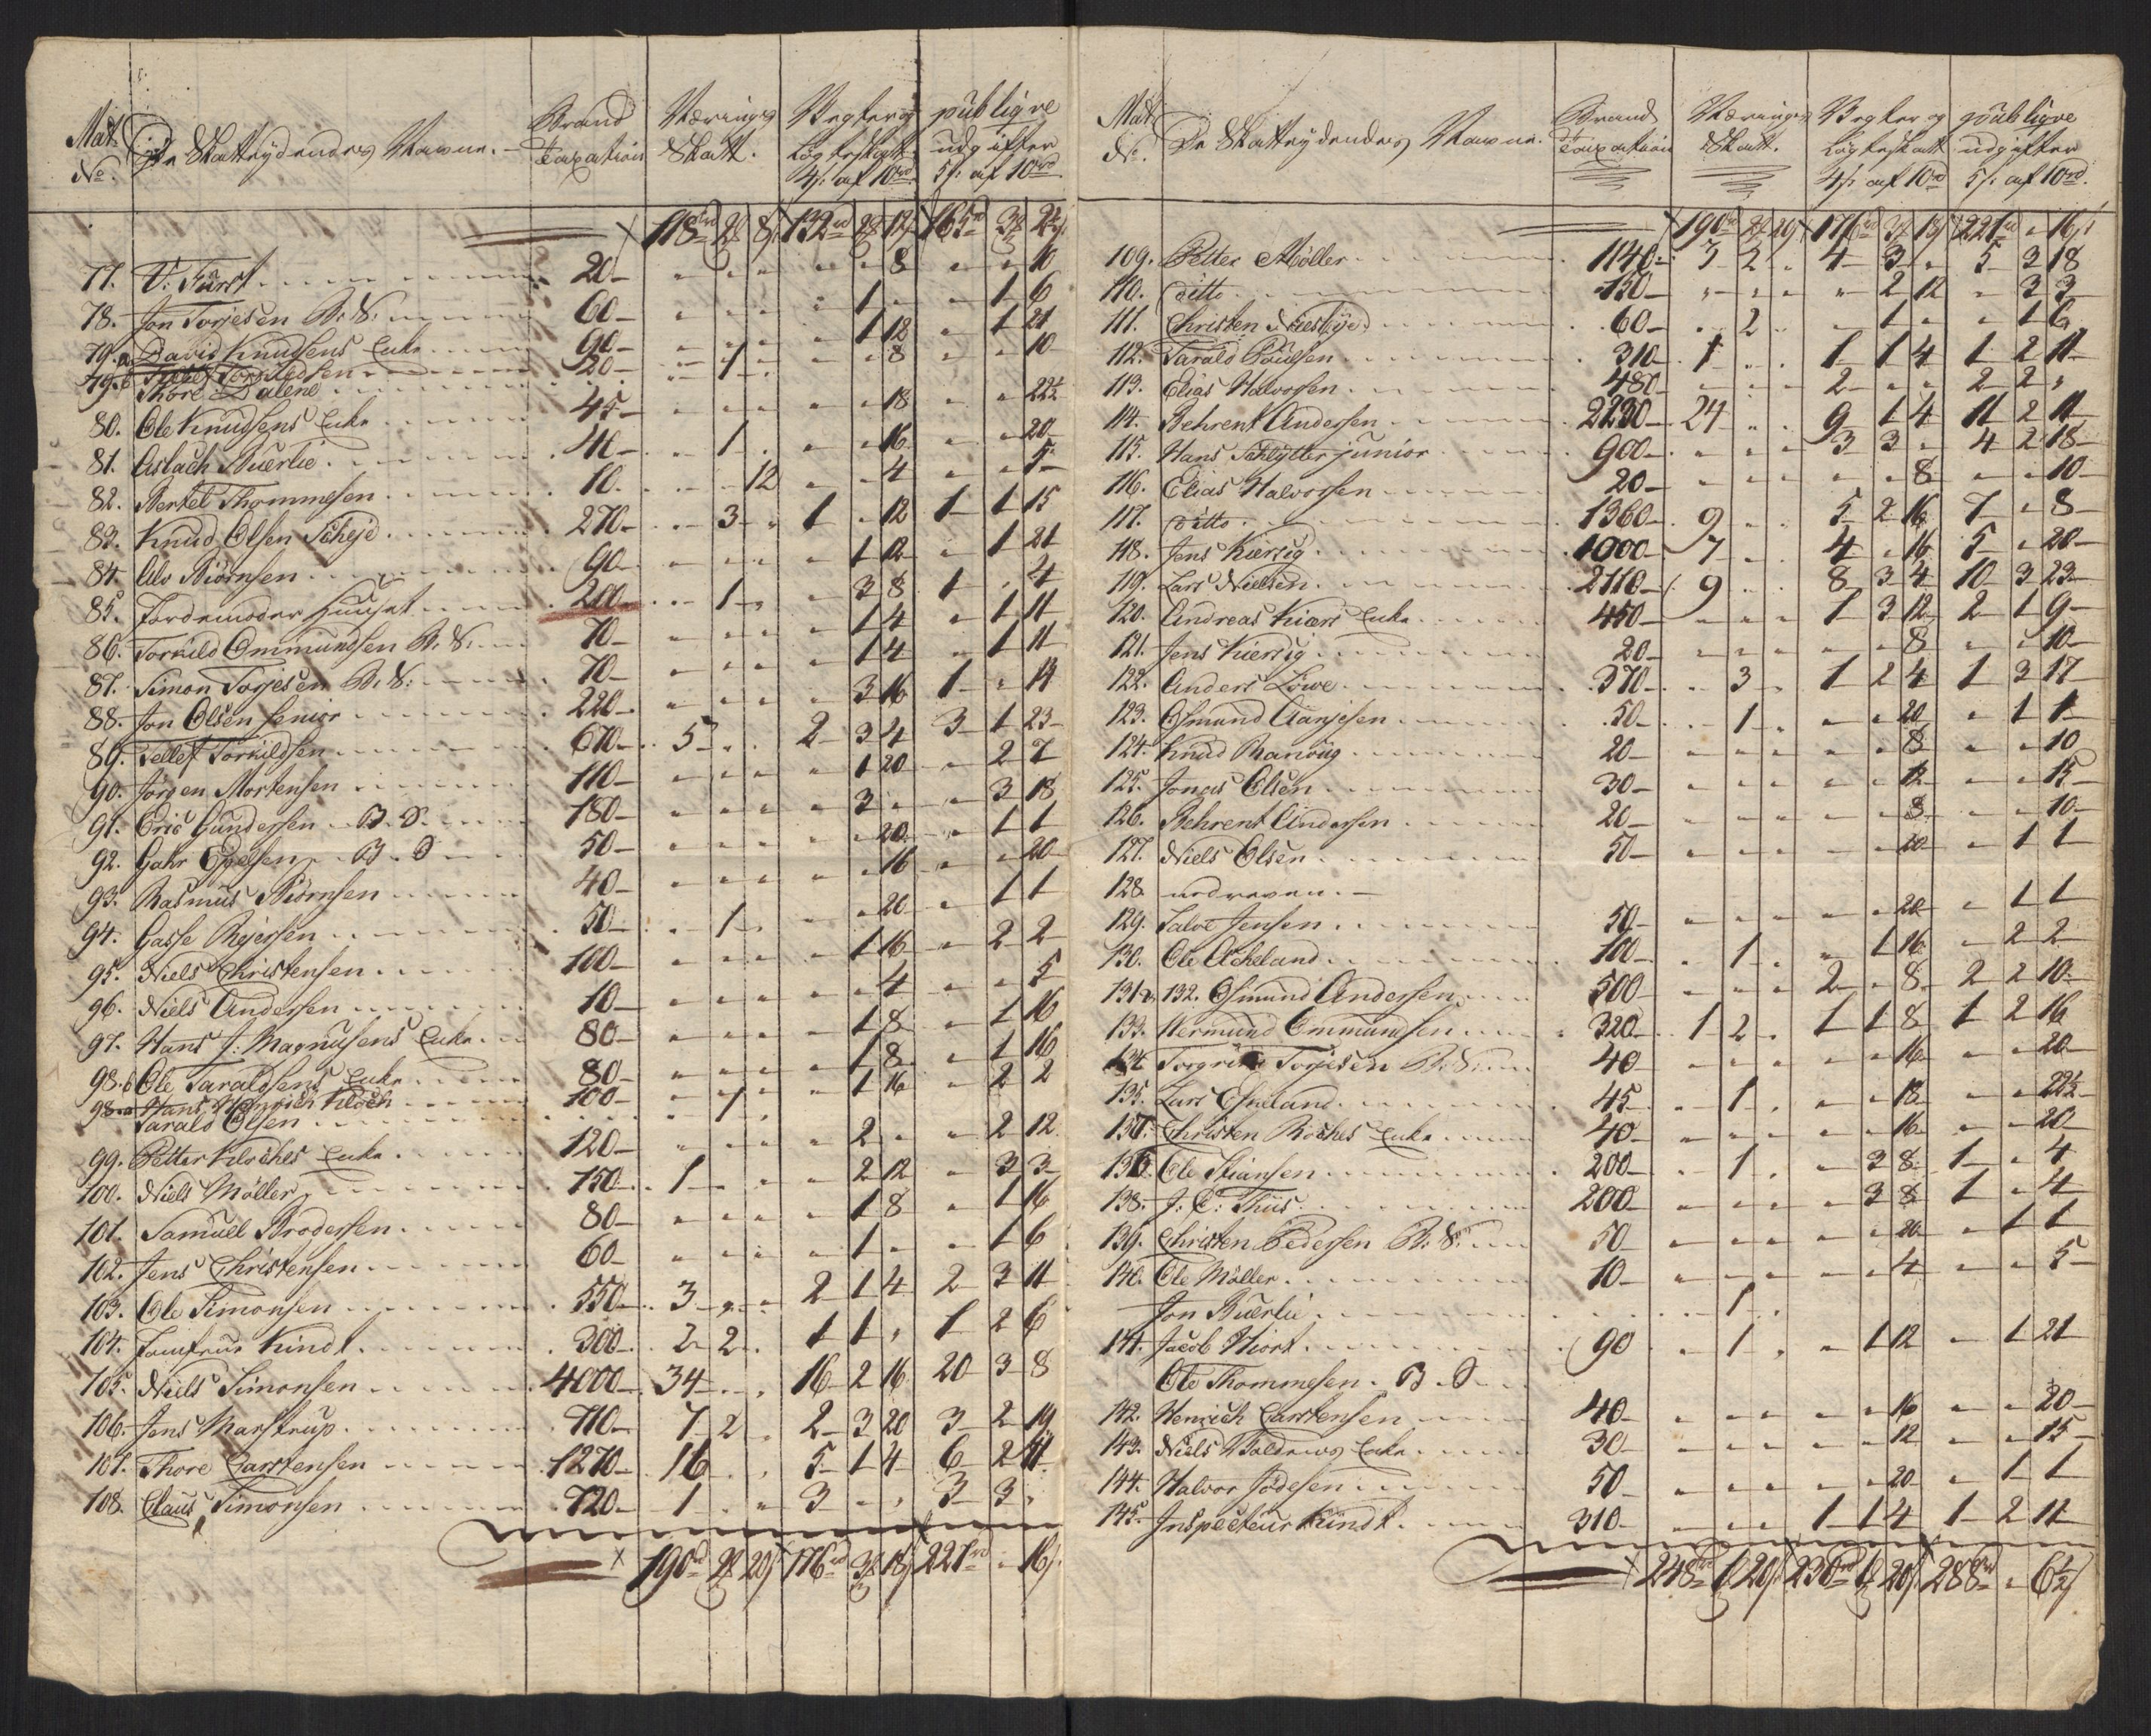 Mats No. De Skatteydendes Navne. Brand Taxation Nærings Skatt. Vegter og Løgteskatt 4/: af 10rd publiqve udgifter 5/: af 10rd
118rd 2 8 132rd 2 12 165rd 3 2½
77. V: Fürst 20 " " " " " 8 " " 10
78. Jon Torjesen B: S: 60 " " " " 1 " " 1 6
79.a David Knudsens Enke 90 " " " " 1 12 " 1 21
79.b Tellef Torkildsen 20 " 1 " " " 8 " " 10
Thore Dalene
80. Ole Knudsens Enke 45 " " " " " 18 " " 22½
81. Aslach Buerlie 40 " 1 " " " 16 " " 20
82. Bertel Thommesen 10 " " 12 " " 4 " " 5
83. Knud Olsen Scheje 270 " 3 " 1 " 12 1 1 15
84. Alv Biørnsen 90 " " " " 1 12 " 1 21
85. Jordemoder Huuset 200 " 1 " " 3 8 1 " 4
86. Torkild Ommundsen B: S: 70 " " " " 1 4 " 1 11
87. Simon Torjesen B: S: 70 " " " " 1 4 " 1 11
88. Jon Olsen senior 220 " " " " 3 16 1 " 14
89. Tellef Torkildsen 670 5 " " 2 3 4 3 1 23
90. Jörgen Mortensen 110 " " " " 1 20 " 2 7
91. Eric Gundersen B. S. 180 " " " " 3 " " 3 18
92. Gahr Eyelsen B. S 50 " " " " " 20 " 1 1
93. Rasmus Biörnsen 40 " " " " " 16 " " 20
94. Gasse Rejersen 50 " 1 " " " 20 " 1 1
95. Niels Christensen 100 " " " " 1 16 " 2 2
96. Niels Andersen 10 " " " " " 4 " " 5
97. Hans J: Magnusens Enke 80 " " " " 1 8 " 1 16
98.b Ole Taraldsens Enke 80 " " " " 1 8 " 1 16
98.a Hans Henrich Kloch 100 " 1 " " 1 16 " 2 2
Tarald Olsen
99. Petter Kloches Enke 120 " " " " 2 " " 2 12
100. Niels Möller 150 1 " " " 2 12 " 3 3
101. Samuel Brodersen 80 " " " " 1 8 " 1 16
102. Jens Christensen 60 " " " " 1 " " 1 6
103. Ole Simonsen 550 3 " " 2 1 4 2 3 11
104. Jomfrue Kindt 300 2 2 " 1 1 " 1 2 6
105. Niels Simonsen 4000 34 " " 16 2 16 20 3 8
106. Jens Marstrup 710 7 2 " 2 3 20 3 2 19
107. Thore Carstensen 1270 16 " " 5 1 4 6 2 11
108. Claus Simonsen 720 1 " " 3 " " 3 3 "
190rd 2 20 176rd 3 18 221rd " 16
Mats No. De Skatteydendes Navne. Brand Taxation Nærings Skatt. Vegter og Løgteskatt 4/: af 10rd publiqve udgifter 5/: af 10rd.
190rd 2 20 176rd 3 18 221rd " 16
109. Petter Møller 1140 3 2 " 4 3 " 5 3 18
110. Ditto 150 " " " " 2 12 " 3 3
111. Christen Næsbye 60 " 2 " " 1 " " 1 6
112. Tarald Poulsen 310 1 " " 1 1 4 1 2 11
113. Elias Halvorsen 480 " " " 2 " " 2 2 "
114. Behrent Andersen 2230 24 " " 9 1 4 11 2 11
115. Hans Schlytter junior 900 " " " 3 3 " 4 2 18
116. Elias Halvorsen 20 " " " " " 8 " " 10
117. Ditto 1360 9 " " 5 2 16 7 " 8
118. Jens Kiersig 1000 7 " " 4 " 16 5 " 20
119. Lars Nielsen 2110 9 " " 8 3 4 10 3 23
120. Andreas Kiærs Enke 450 " " " 1 3 12 2 1 9
121. Jens Kiersig 20 " " " " " 8 " " 10
122. Anders Löwe 370 " 3 " 1 2 4 1 3 17
123. Osmund Aanjesen 50 " 1 " " " 20 " 1 1
124. Knud Ranvig 20 " " " " " 8 " " 10
125. Jonas Olsen 30 " " " " " 12 " " 15
126. Behrent Andersen 20 " " " " " 8 " " 10
127. Niels Olsen 50 " " " " " 20 " 1 1
128. nedreven.
129. Salve Jensen 50 " " " " " 20 " 1 1
130. Ole Ascheland 100 " 1 " " 1 16 " 2 2
131 & 132. Osmund Andersen 500 " " " 2 " 8 2 2 10
133. Nermund Ommundsen 320 1 2 " 1 1 8 1 2 16
134. Torgrim Torjesen B: S: 40 " " " " " 16 " " 20
135. Lars Esmland 45 " 1 " " " 18 " " 22½
137. Christen Roches Enke 40 " " " " " 16 " " 20
136. Ole Stiansen 200 " 1 " " 3 8 1 " 4
138. J: C: Thiis 200 " " " " 3 8 1 " 4
139. Christen Pedersen B: S: 50 " " " " " 20 " 1 1
140. Ole Möller 10 " " " " " 4 " " 5
Jon Buerlie " 1 "
141. Jacob Hiort 90 " 1 " " 1 12 " 1 21
Ole Thommesen. B. S.
142. Henrich Carstensen 40 " " " " " 16 " " 20
143. Niels Boldevos Enke 30 " " " " " 12 " " 15
144. Halvor Jödesen 50 " " " " " 20 " 1 1
145. Inspecteur Kindt 310 " " " 1 1 4 1 2 11
248rd 1 20 230rd 1 20 288rd " 6½